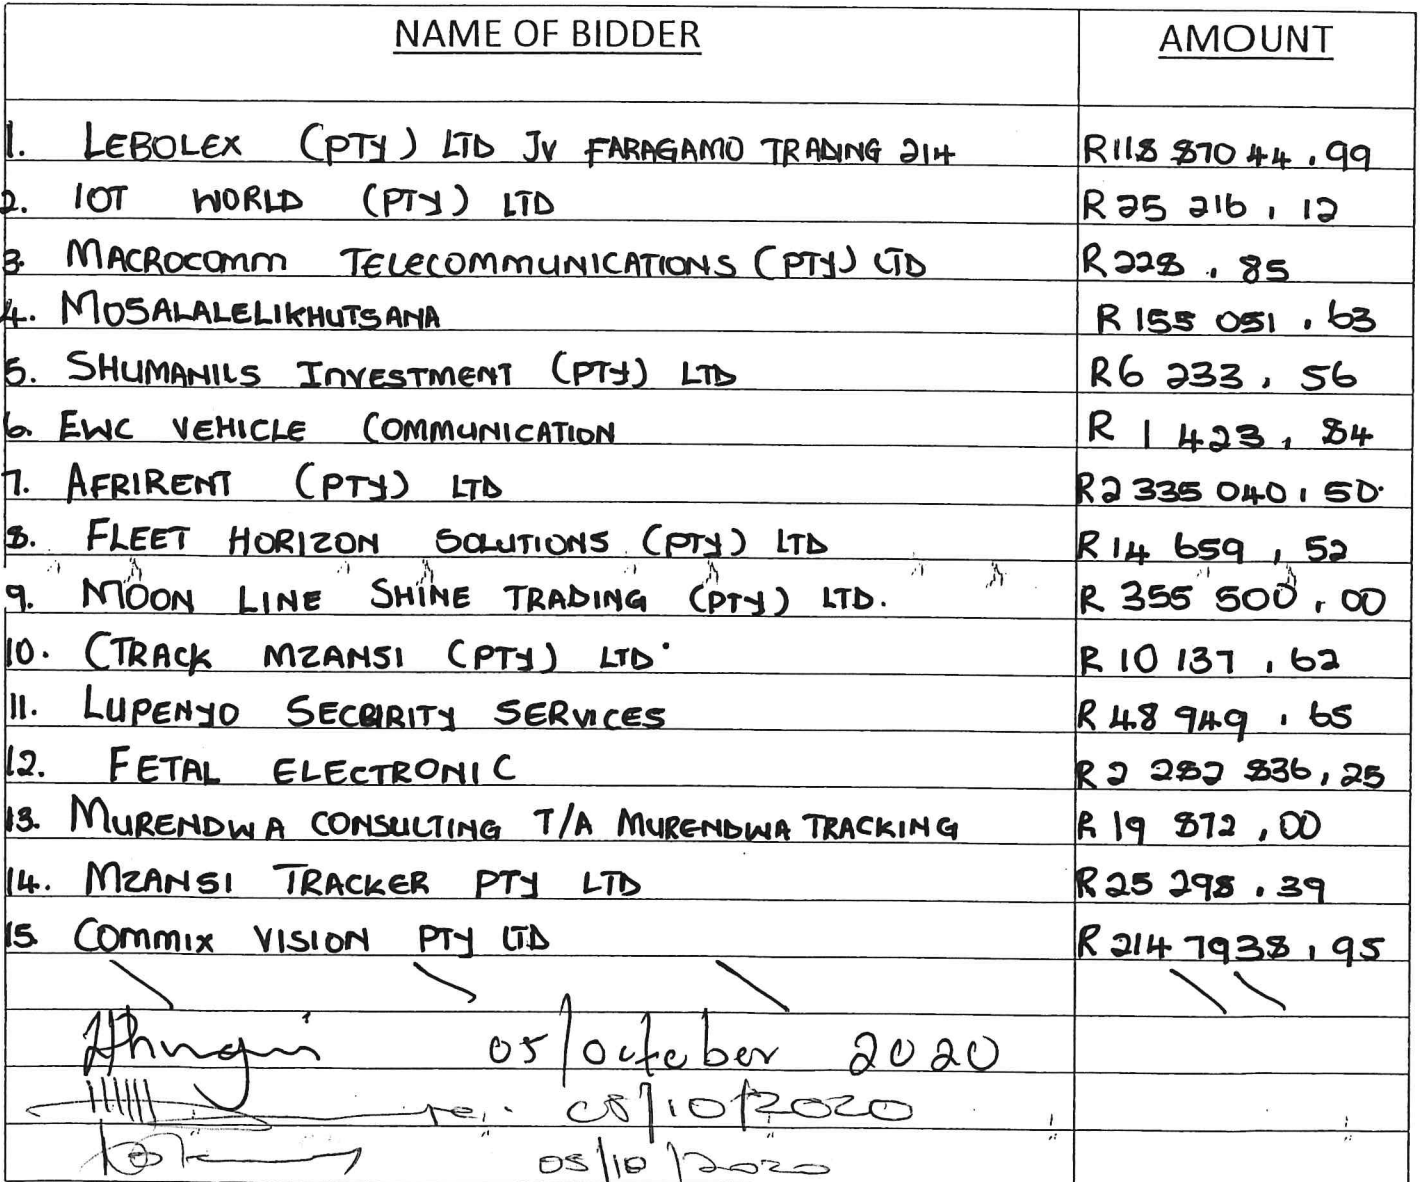 NAME OF BIDDER AMOUNT
1. LEBOLEX (PTY) LTD JV FARAGAMO TRADING 214 R118 870 44,99
2. IOT WORLD (PTY) LTD R25 216, 12
3. MACROCOMM TELECOMMUNICATIONS (PTY) LTD R228,85
4. MOSALALELIKHUTSANA R155 051,63
5. SHUMANILS INVESTMENT (PTY) LTD R6 233, 56
6. EWC VEHICLE COMMUNICATION R 1 423, 84
7. AFRIRENT (PTY) LTD R2 335 040,50
8. FLEET HORIZON SOLUTIONS (PTY) LTD R14 659, 52
9. MOON LINE SHINE TRADING (PTY) LTD. R 355 500,00
10. CTRACK MZANSI (PTY) LTD R10 137,62
11. LUPENYO SECURITY SERVICES R48 949,65
12. FETAL ELECTRONIC R2 282 836,25
13. MURENDWA CONSULTING T/A MURENDWA TRACKING R19 872,00
14. MZANSI TRACKER PTY LTD R25 298.39
15. COMMIX VISION PTY LTD R214 7938,95
05/October 2020
05/10/2020
05/10/2020